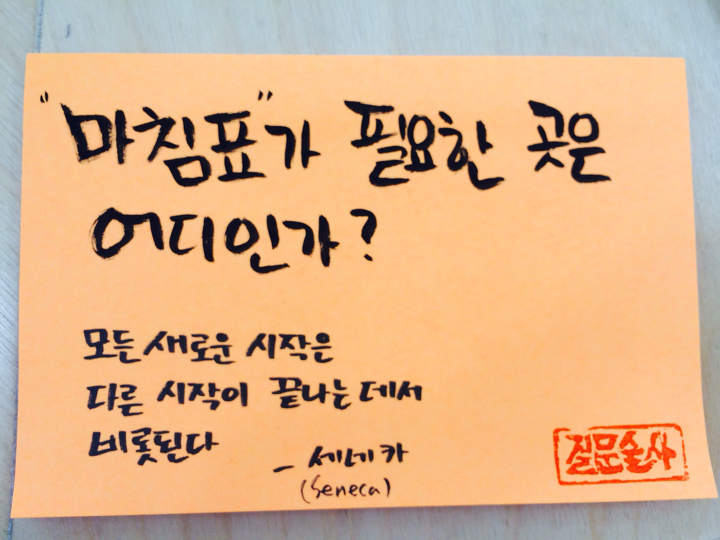 "마침표"가 필요한 곳은
어디인가?
모든 새로운 시작은
다른 시작이 끝나는데서
비롯된다
- 세네카
(Seneca)
질문술사